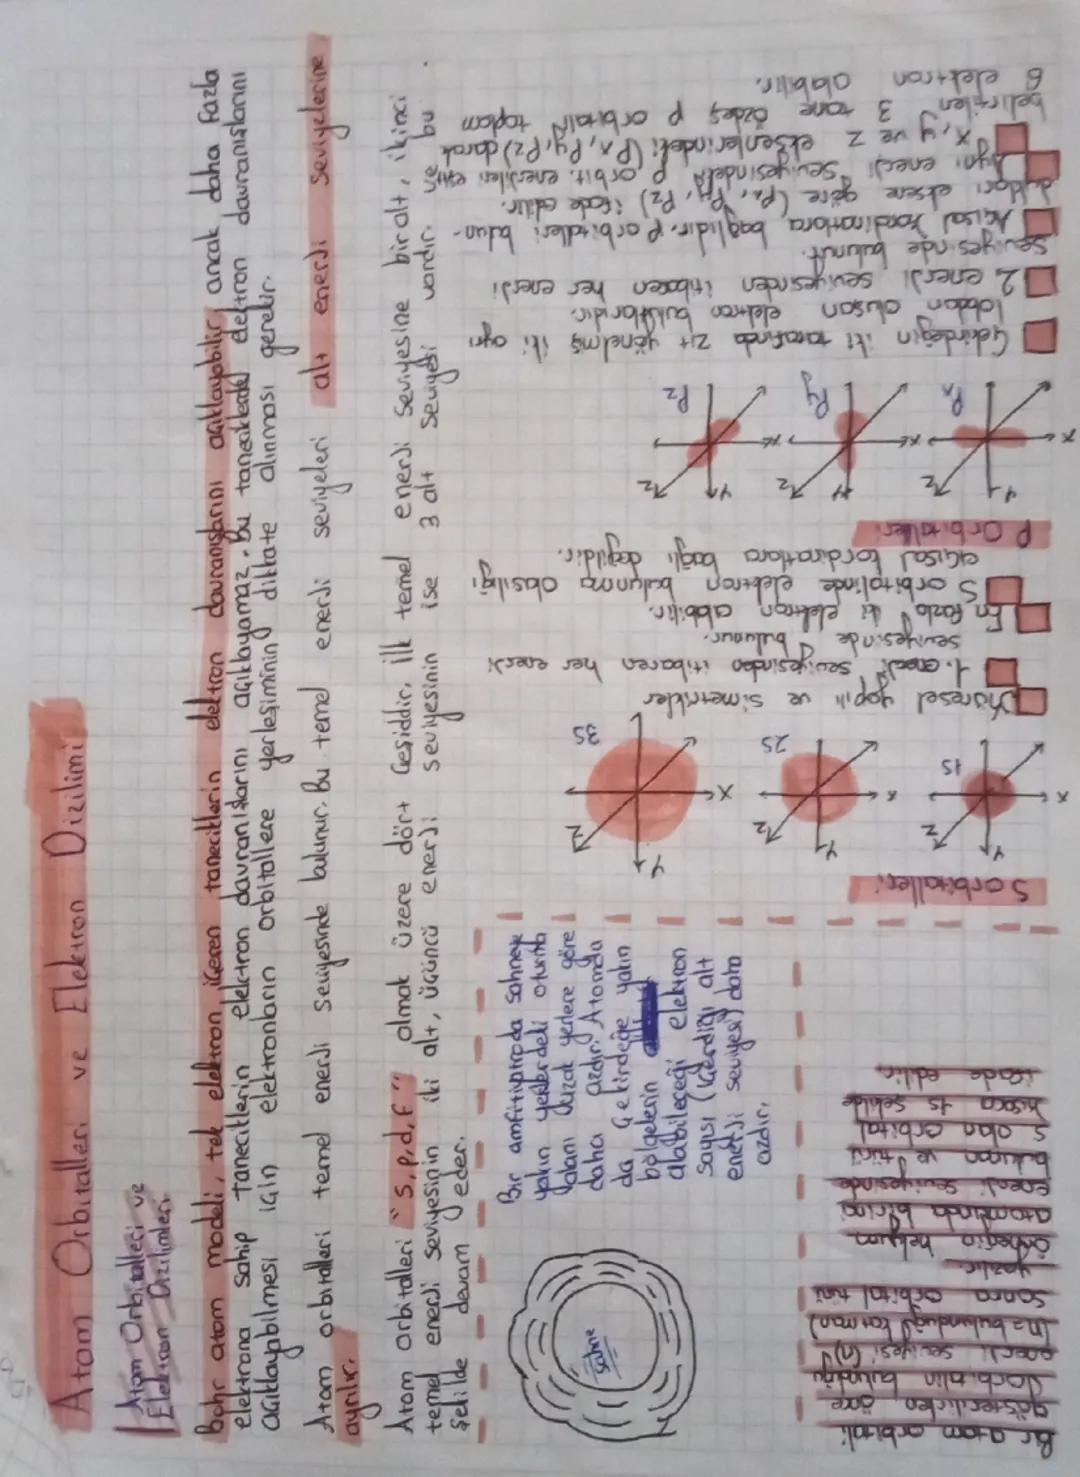 Atom Orbitalleri ve Elektron Dizilimi
Atom Orbitalleri ve
Elektron Dizilimleri
Bohr atom modeli, tek elektron içeren taneciklerin elektron davranışlarını açıklayabilir, ancak daha fazla
elektrona sahip taneciklerin elektron davranışlarını açıklayamaz. Bu taneciklerde elektron davranışlarını
açıklayabilmesi için elektronların orbitallere yerleşiminin dikkate alınması gerekir.
Atom orbitalleri temel enerji seviyesinde bulunur. Bu temel enerji seviyeleri alt enerji seviyelerine
ayrılır.
Atom orbitalleri "s,p,d,f" olmak üzere dört çeşiddir. İlk temel enerji seviyesine bir alt, ikinci
temel enerji seviyesinin iki alt, üçüncü enerji seviyesinin ise 3 alt seviyesi vardır. Ve bu
şekilde devam eder.
sahne
Bir amfitiyatroda sahneye
yakın yerlerdeki oturma
alanı uzak yerlere göre
daha azdır. Atomda
da çekirdeğe yakın
bölgelerin
alabileceği elektron
sayısı (içerdiği alt
enerji seviyesi) daha
azdır.
Bir atom orbitali
gösterilirken önce
orbitalin bulunduğu
enerji seviyesi (n)
(n= bulunduğu katman)
sonra orbital türü
yazılır.
Örneğin helyum
atomunda birinci
enerji seviyesinde
bulunan ve türü
s olan orbital
kısaca 1s şekilde
ifade edilir.
S orbitalleri
1S
X
Y
Z
2S
Y
Z
3S
X
Y
Z
Küresel yapılı ve simetrikler
1. enerji seviyesinden itibaren her enerji
seviyesinde bulunur.
En fazla iki elektron alabilir.
S orbitalinde elektron bulunma olasılığı
açısal kordinatlara bağlı değildir.
P Orbitalleri
Px
X
Y
Z
Py
X
Y
Z
Pz
X
Y
Z
Çekirdeğin iki tarafında zıt yönelmiş iki ayrı
lobdan oluşan elektron bulutlarıdır.
2. enerji seviyesinden itibaren her enerji
seviyesinde bulunur.
Açısal koordinatlara bağlıdır. P orbitalleri bulun-
dukları eksene göre (Px, Py, Pz) ifade edilir.
Aynı enerji seviyesindeki P orbit. enerjileri eşit
x, y ve z eksenlerindeki (Px, Py, Pz) olarak
belirtilen 3 tane özdeş p orbitali toplam
6 elektron alabilir.